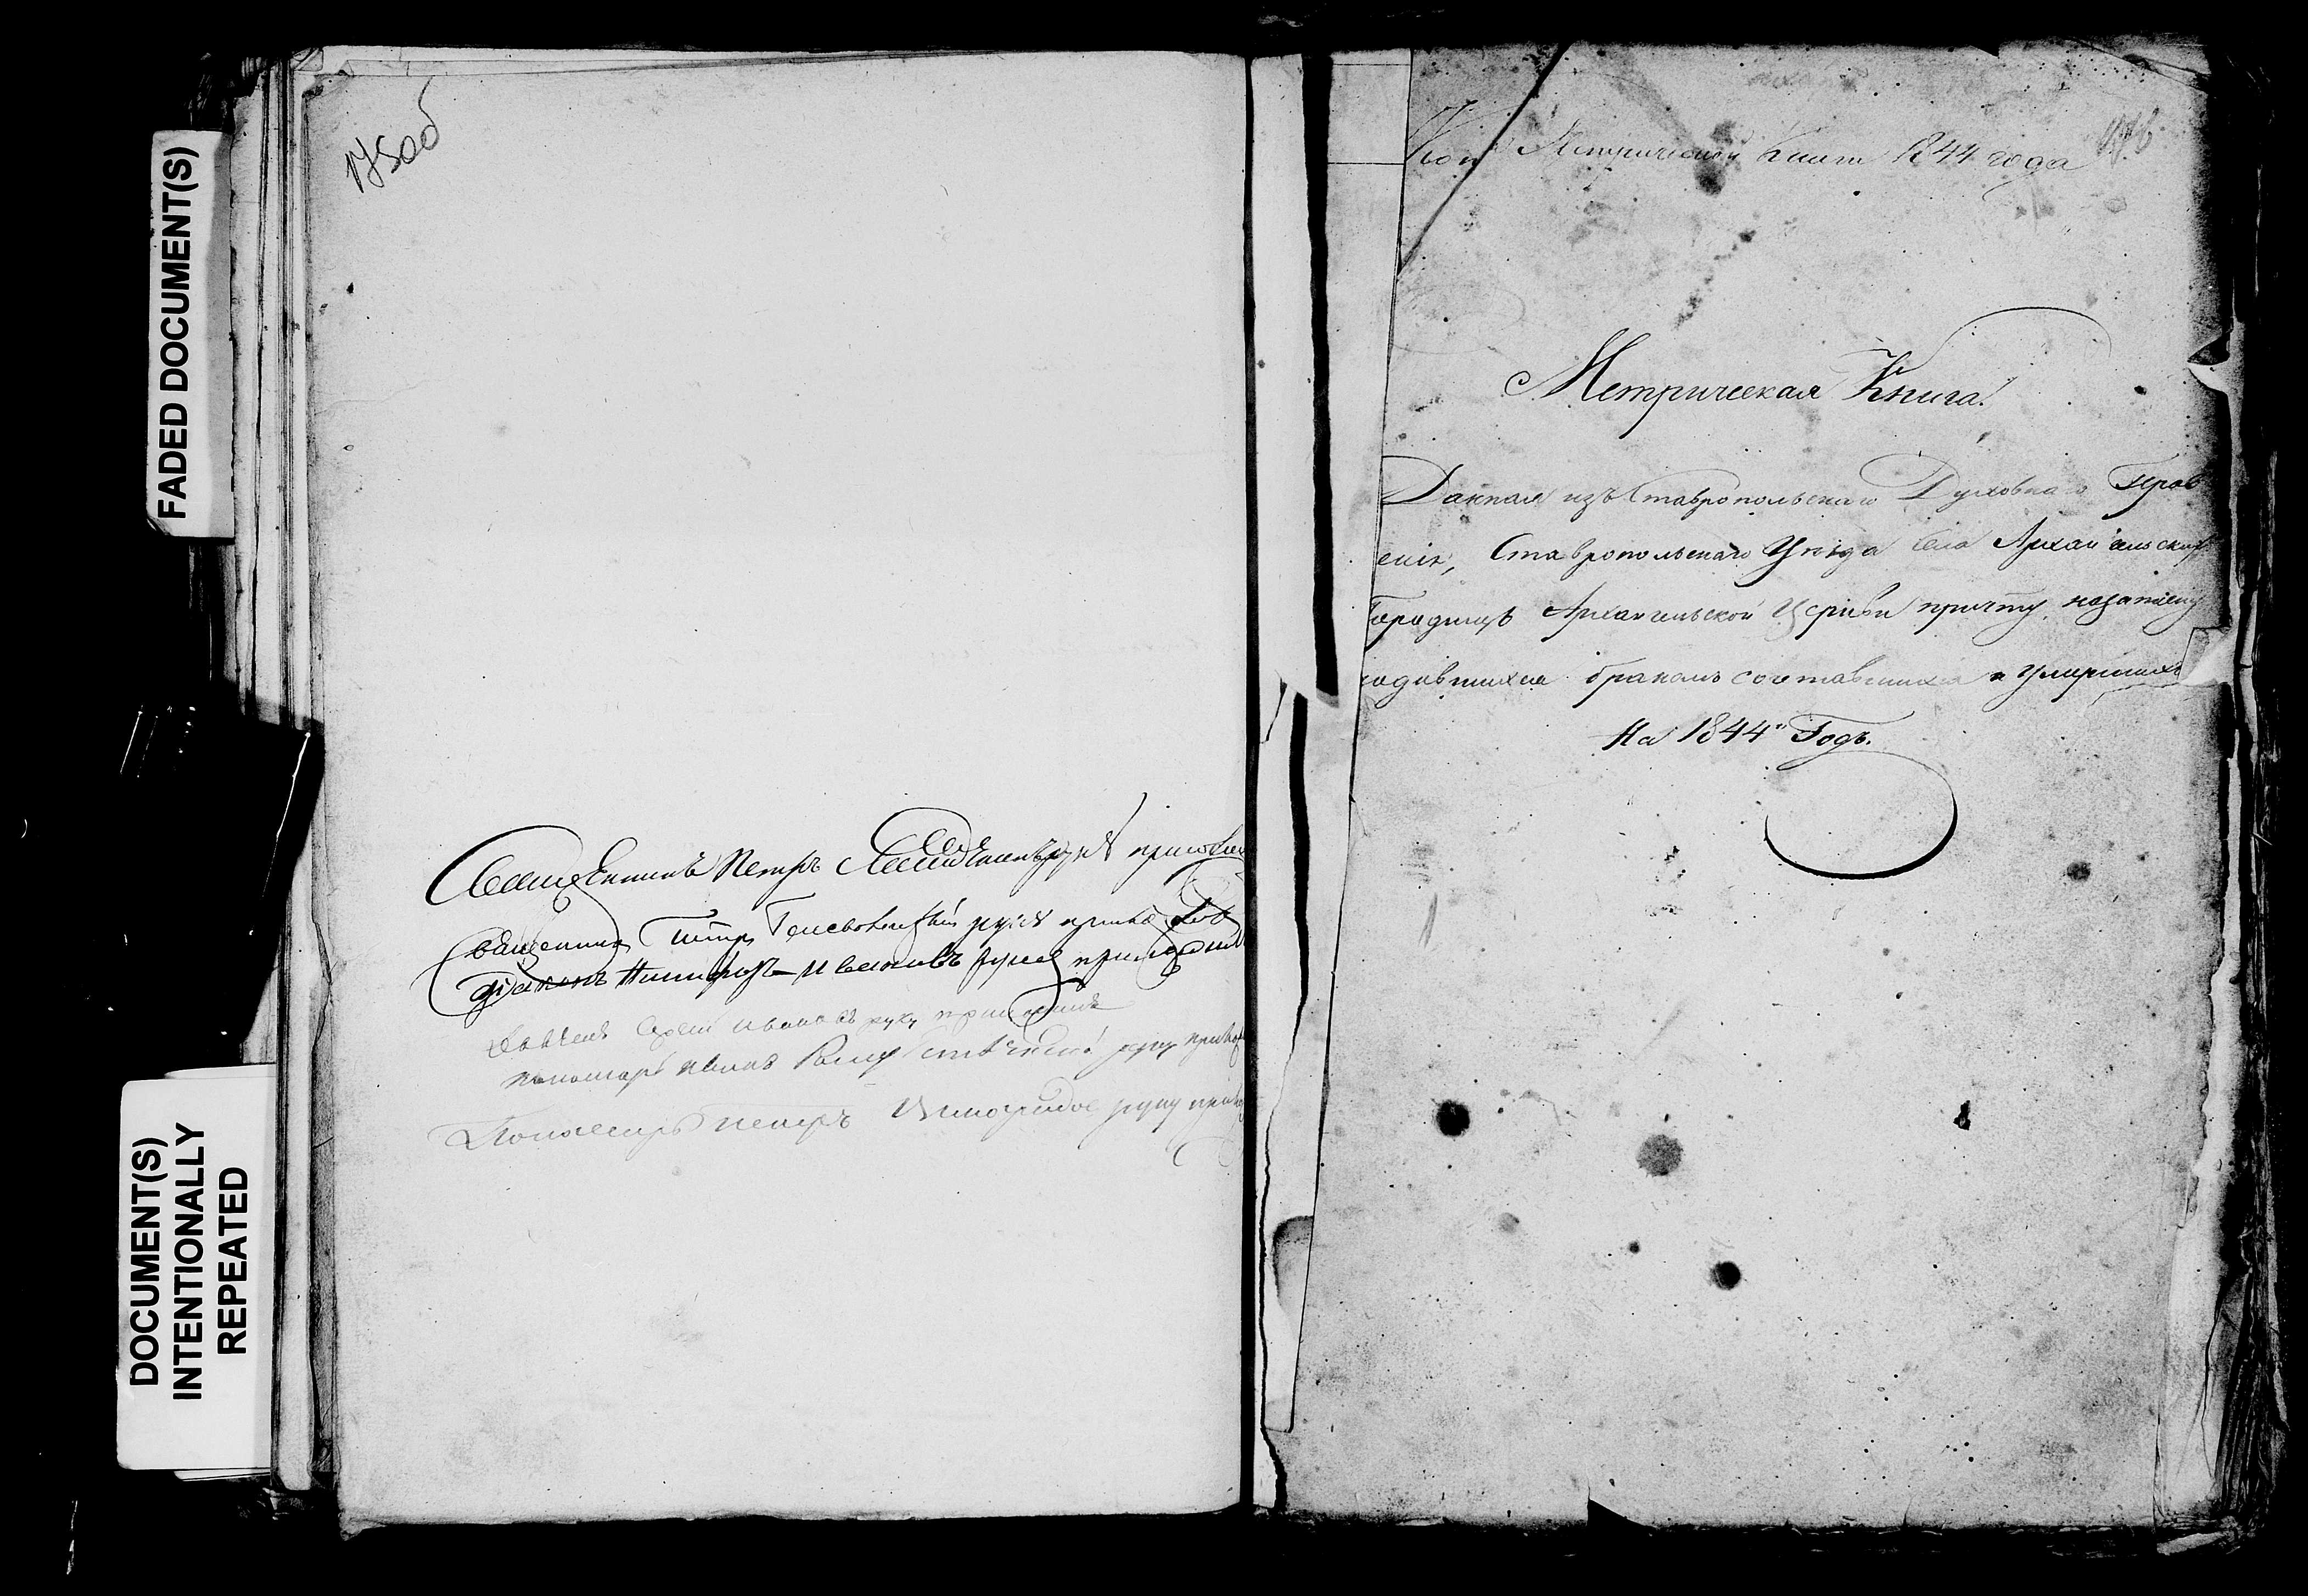 FADED DOCUMENT(S)
DOCUMENT(S)
INTENTIONALLY
REPEATED
175об
Священникъ Петръ руку прило
Священникъ Петръ руку
Дiаконъ Никифоръ Ивановъ руку приложилъ
Дьячекъ Сергей Ивановъ руку приложилъ
пономарь Иванъ руку
Пономарь Петръ Виноградов руку
Метрической Книги 1844 года
176
Метрическая Книга.
Данная изъ Ставропольскаго Духовнаго Прав
енiя, Ставропольскаго Уѣзда Села Архангельских
Городищъ Архангельской Церкви причту, на записку
родившихся бракомъ сочетавшихся и умершихъ
На 1844й Годъ.